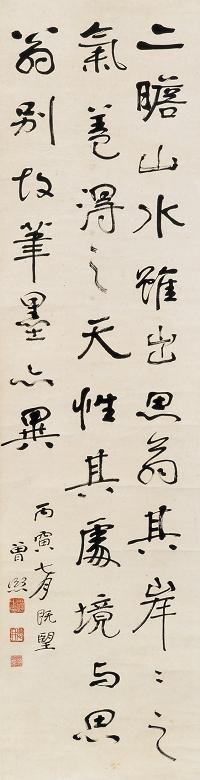 二瞻山水雖出思翁其岸〻之
氣蓋得之天性其處境与思
翁別故筆墨亦異
丙寅七月既望
曾熙